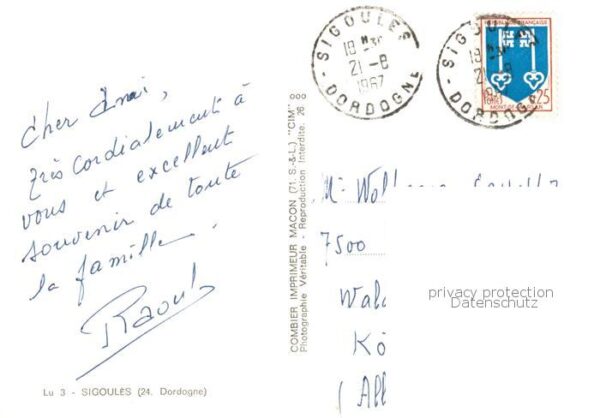 Cher Ami,
très cordialement à
vous et excellent
souvenir de toute
la famille.
Raoul
Lu 3 - SIGOULES (24. Dordogne)
COMBIER IMPRIMEUR MACON (71. S.-&-L.) "CIM"
Photographie Véritable - Reproduction Interdite. 26 000
SIGOULES
18 H
21-8
1967
DORDOGNE
REPUBLIQUE FRANÇAISE
0,25
MONT-DE-MARSAN
SIGOU
18 H
21
DORDOGN
7500
Wal
Kö
(All
privacy protection
Datenschutz